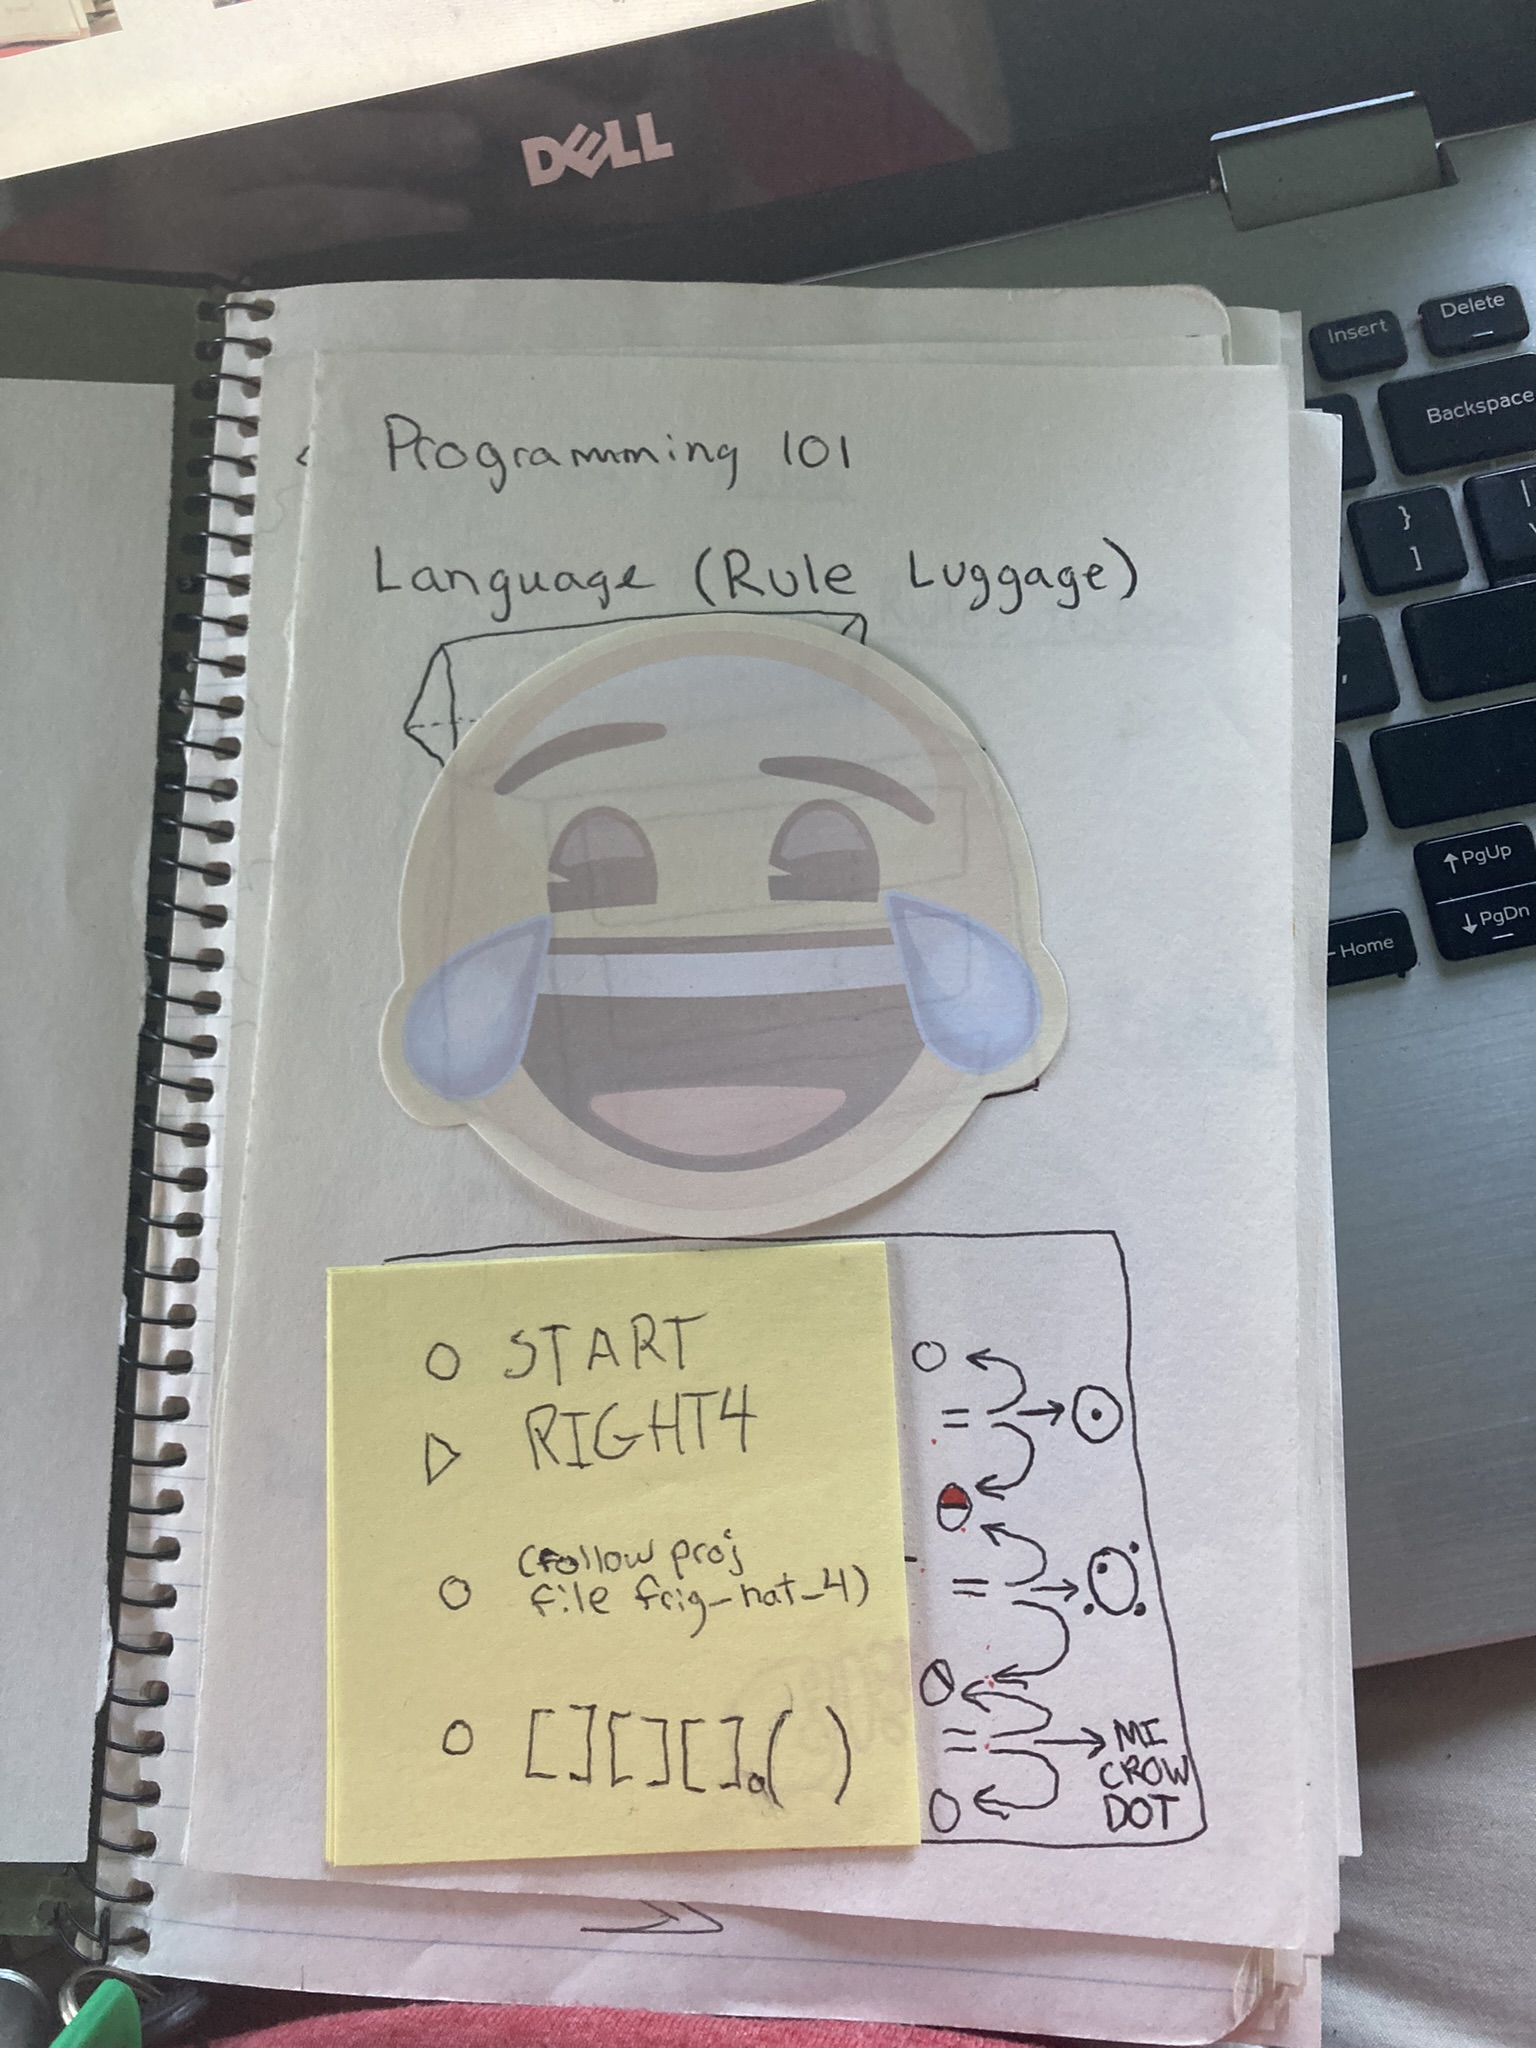 DELL
Insert
Delete
Backspace
}
]
PgUp
PgDn
Home
Programming 101
Language (Rule Luggage)
START
RIGHT4
(follow proj
file frig_nat_4)
[][][].()
=
=
=
MI
CROW
DOT